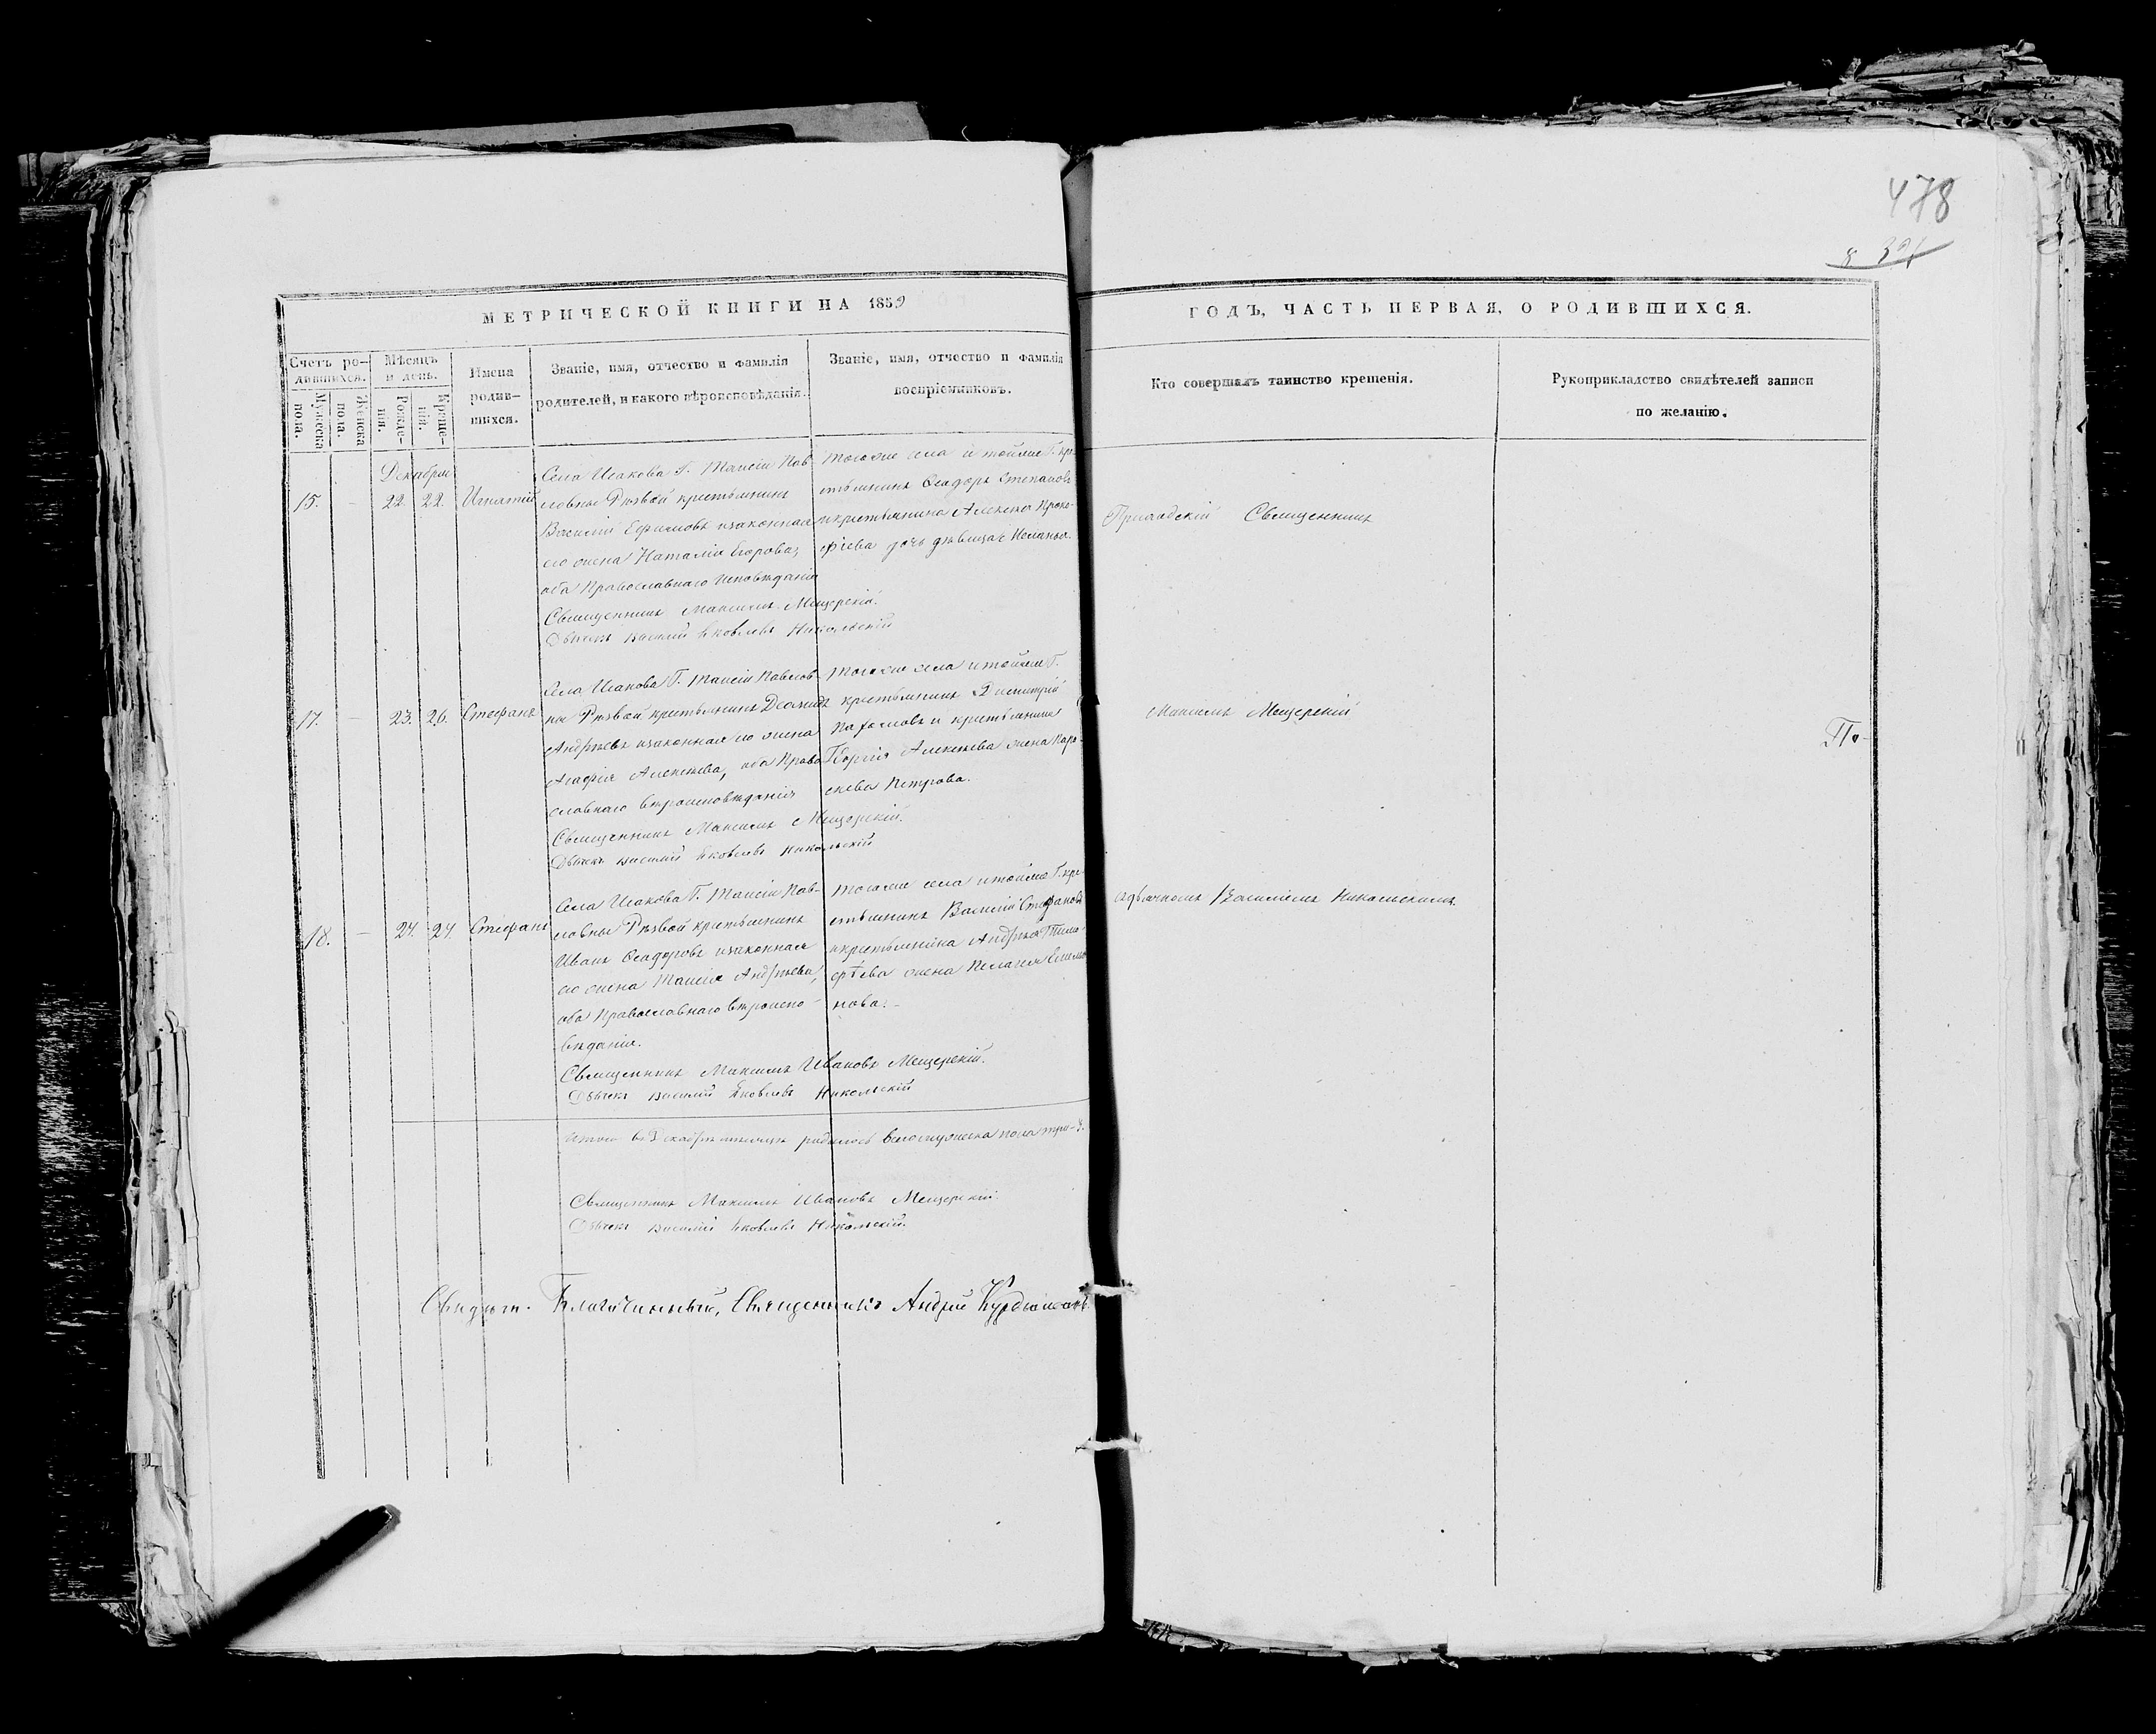 478
МЕТРИЧЕСКОЙ КНИГИ НА 1859
ГОДЪ, ЧАСТЬ ПЕРВАЯ, О РОДИВШИХСЯ.
Счетъ ро-
дившихся.
Мужеска
пола.
Женска
пола.
Мѣсяцъ
и день.
Рожде-
нія.
Креще-
нія.
Имена
родив-
шихся.
Званіе, имя, отчество и фамилія
родителей, и какого вѣроисповѣданія.
Званіе, имя, отчество и фамилія
воспріемниковъ.
Кто совершалъ таинство крещенія.
Рукоприкладство свидѣтелей записи
по желанію.
Декабрь
15. - 22. 22. Игнатій
Села Исакова Г. Таисіи Пав-
ловны Рѣзвой крестьянинъ
Василій Ефимовъ изаконная
его жена Наталія Егорова,
оба Православнаго исповѣданія
Священникъ Максимъ Мещерскій.
Дьячекъ Василій Яковлевъ Никольскій
Тогоже села и тойже Г. кре-
стьянинъ Ѳеодоръ Степановъ
икрестьянина Алексея Проко-
фіева дочь дѣвица Меланья.
Приходскій Священникъ
17. - 23. 26. Стефанъ
Села Исакова Г. Таисіи Павлов-
ны Рѣзвой крестьянинъ Деомидъ
Андрѣевъ изаконная его жена
Агафія Алексѣева, оба Право-
славнаго вѣроисповѣданія
Священникъ Максимъ Мещерскій.
Дьячекъ Василій Яковлевъ Никольскій
Тогоже села итойже Г.
крестьянинъ Димитрій
Пахомовъ и крестьянина
Георгія Алексѣева жена Пара-
скева Петрова.
Максимъ Мещерскій
По-
18. - 24. 24. Стефанъ
Села Исакова Г. Таисіи Пав-
ловны Рѣзвой крестьянинъ
Иванъ Ѳеодоровъ изаконная
его жена Таисія Андрѣева,
оба Православнаго вѣроиспо-
вѣданія.
Священникъ Максимъ Ивановъ Мещерскій.
Дьячекъ Василій Яковлевъ Никольскій
Тогоже села итойже Г. кре-
стьянинъ Василій Стефановъ
икрестьянина Андрѣя Тимо-
фѣева жена Пелагея
нова.
сдьячкомъ Василіемъ Никольскимъ.
Итого въ Декабрѣ мѣсяцѣ родилось всего мужеска пола три - 3.
Священникъ Максимъ Ивановъ Мещерскій.
Дьячекъ Василій Яковлевъ Никольскій.
Благочинный, Священникъ Андрей